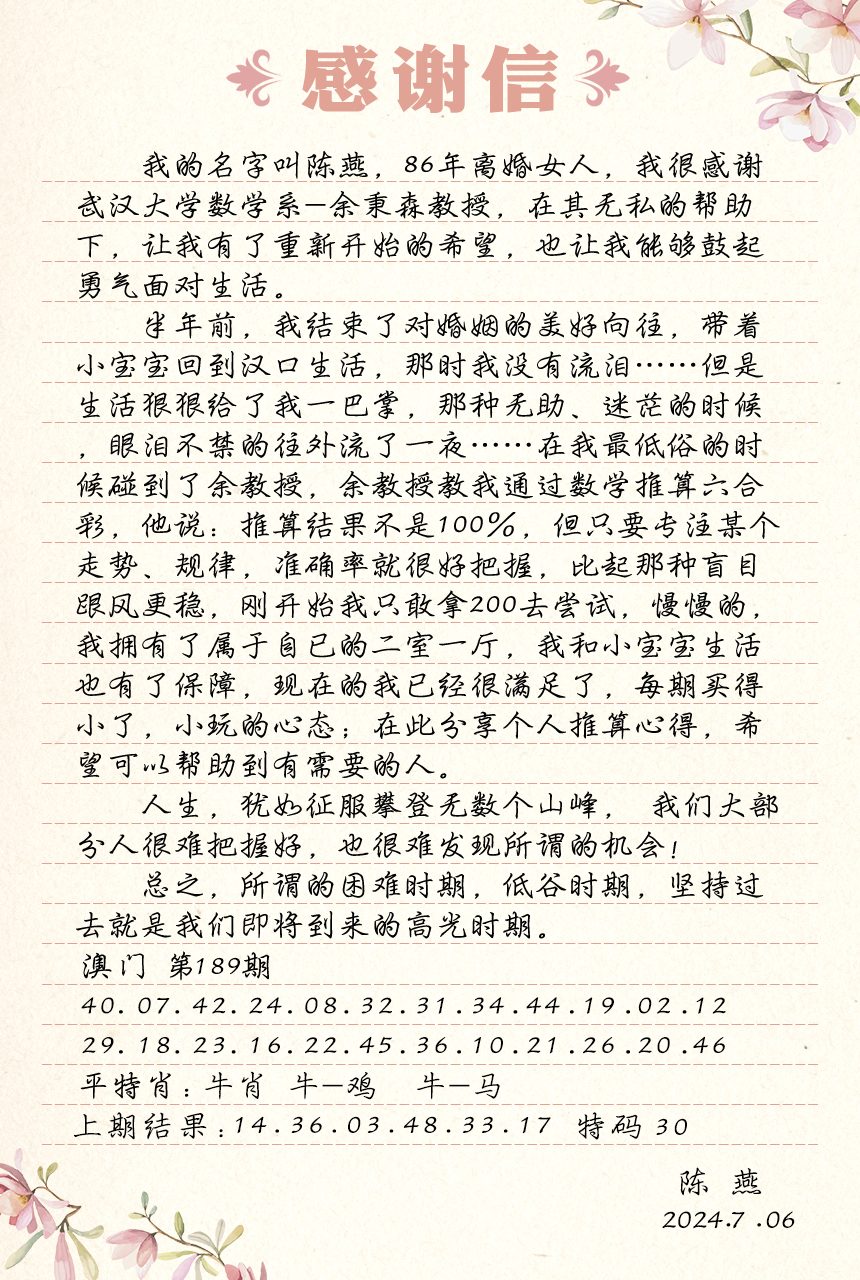 感谢信
我的名字叫陈燕，86年离婚女人，我很感谢
武汉大学数学系—余秉森教授，在其无私的帮助
下，让我有了重新开始的希望，也让我能够鼓起
勇气面对生活。
半年前，我结束了对婚姻的美好向往，带着
小宝宝回到汉口生活，那时我没有流泪……但是
生活狠狠给了我一巴掌，那种无助、迷茫的时候
，眼泪不禁的往外流了一夜……在我最低俗的时
候碰到了余教授，余教授教我通过数学推算六合
彩，他说：推算结果不是100%，但只要专注某个
走势、规律，准确率就很好把握，比起那种盲目
跟风更稳，刚开始我只敢拿200去尝试，慢慢的，
我拥有了属于自已的二室一厅，我和小宝宝生活
也有了保障，现在的我已经很满足了，每期买得
小了，小玩的心态；在此分享个人推算心得，希
望可以帮助到有需要的人。
人生，犹如征服攀登无数个山峰， 我们大部
分人很难把握好，也很难发现所谓的机会！
总之，所谓的困难时期，低谷时期，坚持过
去就是我们即将到来的高光时期。
澳门 第189期
40.07.42.24.08.32.31.34.44.19.02.12
29.18.23.16.22.45.36.10.21.26.20.46
平特肖：牛肖 牛—鸡 牛—马
上期结果：14.36.03.48.33.17 特码 30
陈 燕
2024.7.06